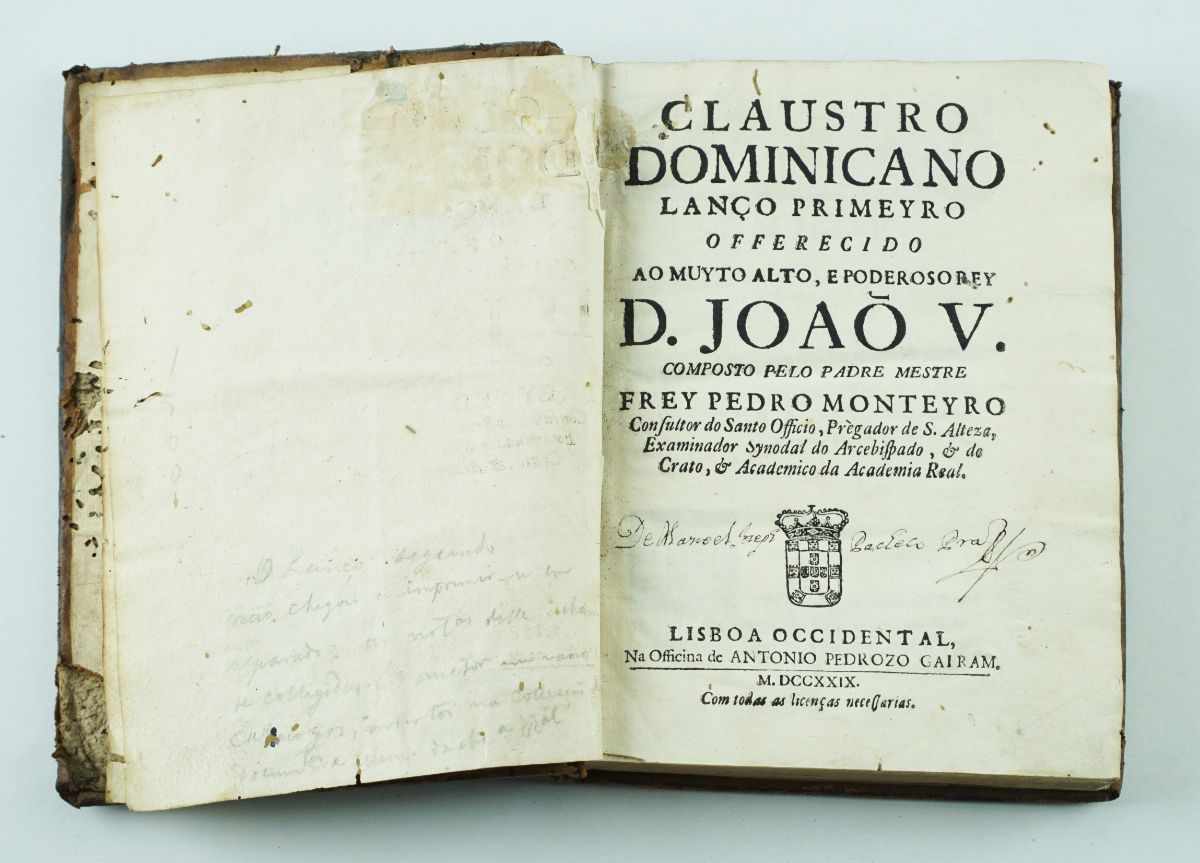 O Lanço segundo
não chegou a imprimir-se em
separado: as notas delle acham
se colligidas
Catalogos, insertos na Collecção de
CLAUSTRO
DOMINICANO
LANÇO PRIMEYRO
OFFERECIDO
AO MUYTO ALTO, E PODEROSO REY
D. JOAÕ V.
COMPOSTO PELO PADRE MESTRE
FREY PEDRO MONTEYRO
Consultor do Santo Officio, Prègador de S. Alteza,
Examinador Synodal do Arcebispado, & do
Crato, & Academico da Academia Real.
De Manoel Pacheco Pra
LISBOA OCCIDENTAL,
Na Officina de ANTONIO PEDROZO GALRAM.
M. DCCXXIX.
Com todas as licenças necessarias.